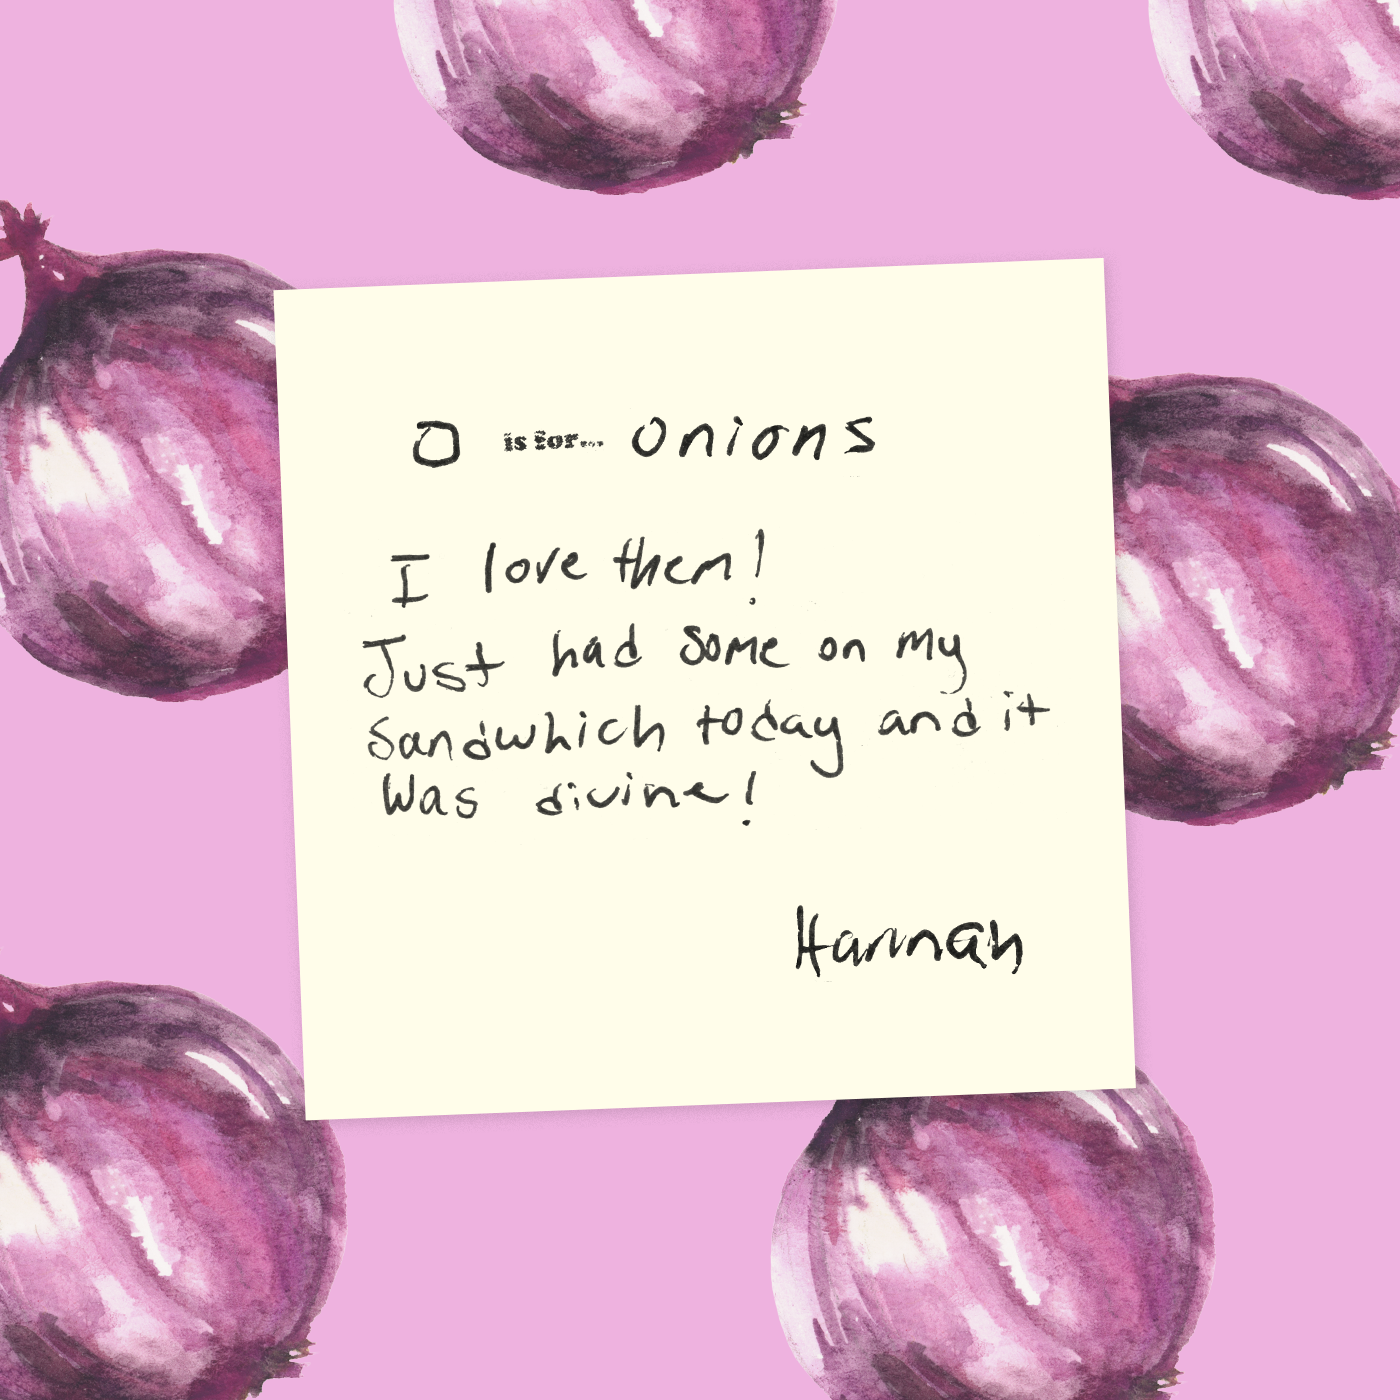 O is for... onions
I love them!
Just had some on my
Sandwhich today and it
Was divine!
Hannah